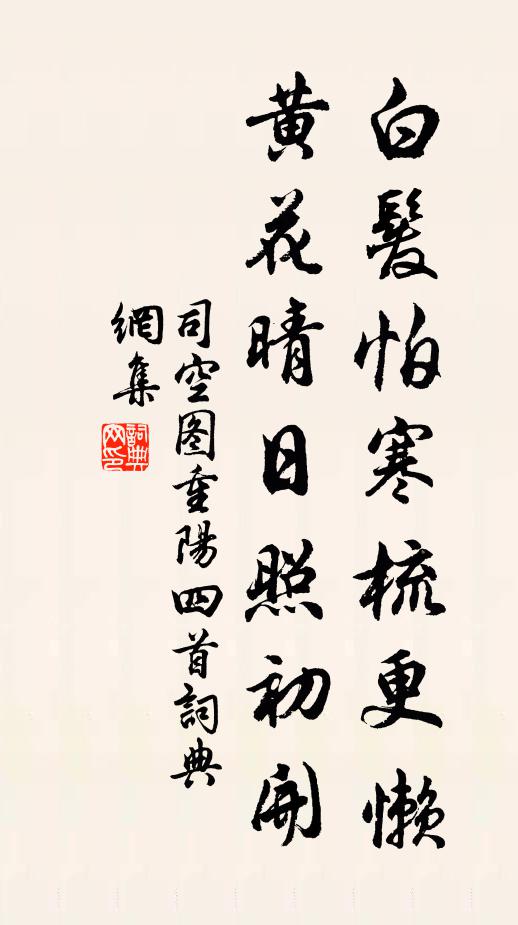 白髮怕寒梳更懶
黃花晴日照初開
司空圖重陽四首詞典
網集
詞典網印